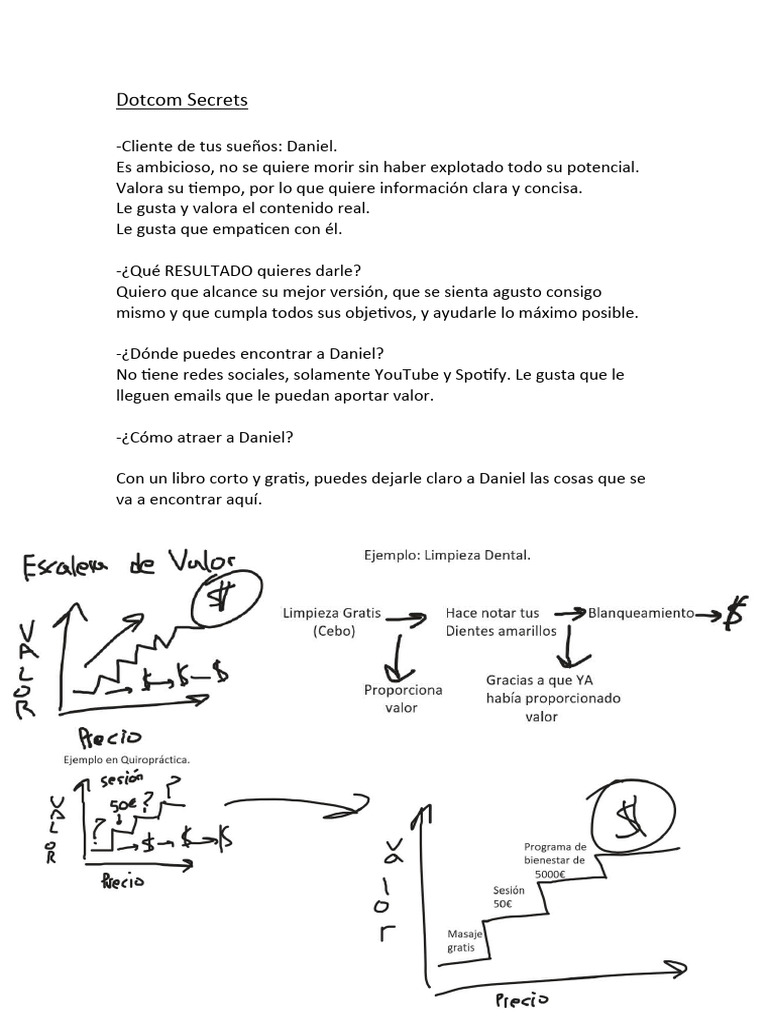 Dotcom Secrets
-Cliente de tus sueños: Daniel.
Es ambicioso, no se quiere morir sin haber explotado todo su potencial.
Valora su tiempo, por lo que quiere información clara y concisa.
Le gusta y valora el contenido real.
Le gusta que empaticen con él.
-¿Qué RESULTADO quieres darle?
Quiero que alcance su mejor versión, que se sienta agusto consigo
mismo y que cumpla todos sus objetivos, y ayudarle lo máximo posible.
-¿Dónde puedes encontrar a Daniel?
No tiene redes sociales, solamente YouTube y Spotify. Le gusta que le
lleguen emails que le puedan aportar valor.
-¿Cómo atraer a Daniel?
Con un libro corto y gratis, puedes dejarle claro a Daniel las cosas que se
va a encontrar aquí.
Escalera de Valor
$
VALOR
$ $ $
Precio
Ejemplo: Limpieza Dental.
Limpieza Gratis
(Cebo)
Hace notar tus
Dientes amarillos
Blanqueamiento
$
Proporciona
valor
Gracias a que YA
había proporcionado
valor
Ejemplo en Quiropráctica.
sesión
50€
? ? ?
VALOR
$ $ $
Precio
Valor
$
Programa de
bienestar de
5000€
Sesión
50€
Masaje
gratis
Precio